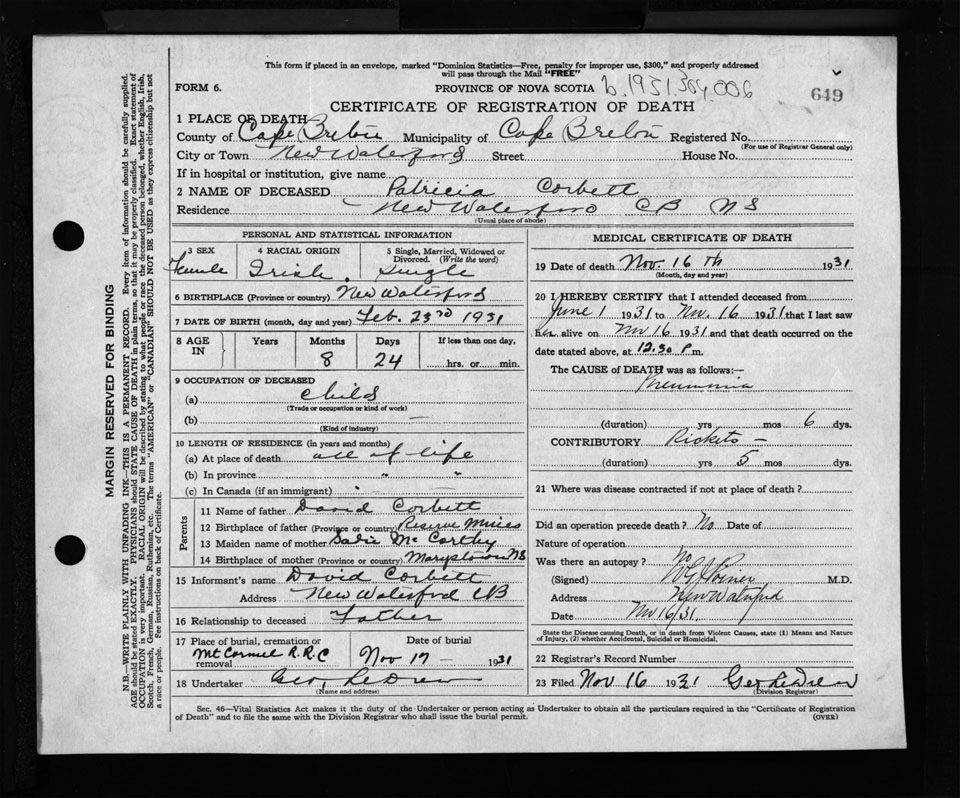 This form if placed in an envelope, marked "Dominion Statistics—Free, penalty for improper use, $300," and properly addressed
will pass through the Mail "FREE"
FORM 6. PROVINCE OF NOVA SCOTIA b.1931.304.006 649
CERTIFICATE OF REGISTRATION OF DEATH
1 PLACE OF DEATH
County of Cape Breton Municipality of Cape Breton Registered No.
(For use of Registrar General only)
City or Town New Waterford Street House No.
If in hospital or institution, give name
2 NAME OF DECEASED Patricia Corbett
Residence New Waterford CB NS
(Usual place of abode)
PERSONAL AND STATISTICAL INFORMATION
3 SEX 4 RACIAL ORIGIN 5 Single, Married, Widowed or
Divorced. (Write the word)
Female Irish. Single
6 BIRTHPLACE (Province or country) New Waterford
7 DATE OF BIRTH (month, day and year) Feb. 23rd 1931
8 AGE IN Years Months Days If less than one day,
8 24 hrs. or min.
9 OCCUPATION OF DECEASED
(a) Child
(Trade or occupation or kind of work)
(b) —
(Kind of industry)
10 LENGTH OF RESIDENCE (in years and months)
(a) At place of death all of life
(b) In province " "
(c) In Canada (if an immigrant) " —
Parents
11 Name of father David Corbett
12 Birthplace of father (Province or country) Reserve Mines
13 Maiden name of mother Sadie McCarthy
14 Birthplace of mother (Province or country) Marystown NS
15 Informant's name David Corbett
Address New Waterford CB
16 Relationship to deceased Father
17 Place of burial, cremation or removal Date of burial
Mt Carmel R.R.C Nov 17 — 1931
18 Undertaker Geo. LeDrew
(Name and address)
MEDICAL CERTIFICATE OF DEATH
19 Date of death Nov. 16 th 1931
(Month, day and year)
20 I HEREBY CERTIFY that I attended deceased from
June 1 1931 to Nv. 16 1931 that I last saw
her alive on Nv 16 1931 and that death occurred on the
date stated above, at 12.30 P.m.
The CAUSE of DEATH was as follows:—
Pneumonia
(duration) yrs mos 6 dys.
CONTRIBUTORY Rickets —
(duration) yrs 5 mos dys.
21 Where was disease contracted if not at place of death?
Did an operation precede death? No Date of
Nature of operation
Was there an autopsy? No
(Signed) M.D.
Address New Waterford
Date Nv 16/31.
State the Disease causing Death, or in death from Violent Causes, state (1) Means and Nature
of Injury, (2) whether Accidental, Suicidal or Homicidal.
22 Registrar's Record Number
23 Filed Nov 16 1931 Geo LeDrew
(Division Registrar)
Sec. 46—Vital Statistics Act makes it the duty of the Undertaker or person acting as Undertaker to obtain all the particulars required in the "Certificate of Registration
of Death" and to file the same with the Division Registrar who shall issue the burial permit. (OVER)
MARGIN RESERVED FOR BINDING
N.B.—WRITE PLAINLY WITH UNFADING INK—THIS IS A PERMANENT RECORD. Every item of information should be carefully supplied.
AGE should be stated EXACTLY. PHYSICIANS should STATE CAUSE OF DEATH in plain terms, so that it may be properly classified. Exact statement of
OCCUPATION is very important. RACIAL ORIGIN will be described by stating to what people or race the deceased person belonged, whether English, Irish,
Scotch, French, German, Russian, Ruthenian, etc. The terms "AMERICAN" or "CANADIAN" SHOULD NOT BE USED as they express citizenship but not
a race or people. Fee instructions on back of Certificate.